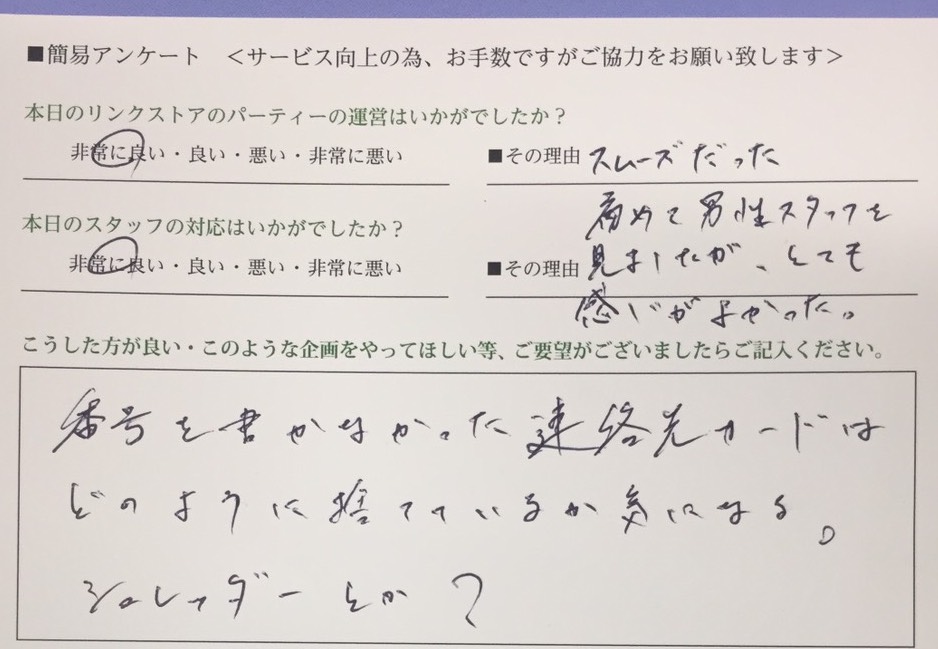 ■簡易アンケート ＜サービス向上の為、お手数ですがご協力をお願い致します＞
本日のリンクストアのパーティーの運営はいかがでしたか？
非常に良い・良い・悪い・非常に悪い
■その理由 スムーズだった
本日のスタッフの対応はいかがでしたか？
非常に良い・良い・悪い・非常に悪い
めて男性スタッフを
■その理由 見ましたが、とても
感じがよかった。
こうした方が良い・このような企画をやってほしい等、ご要望がございましたらご記入ください。
番号を書かなかった連絡先カードは
どのように捨てているか気になる。
シュレッダーとか？